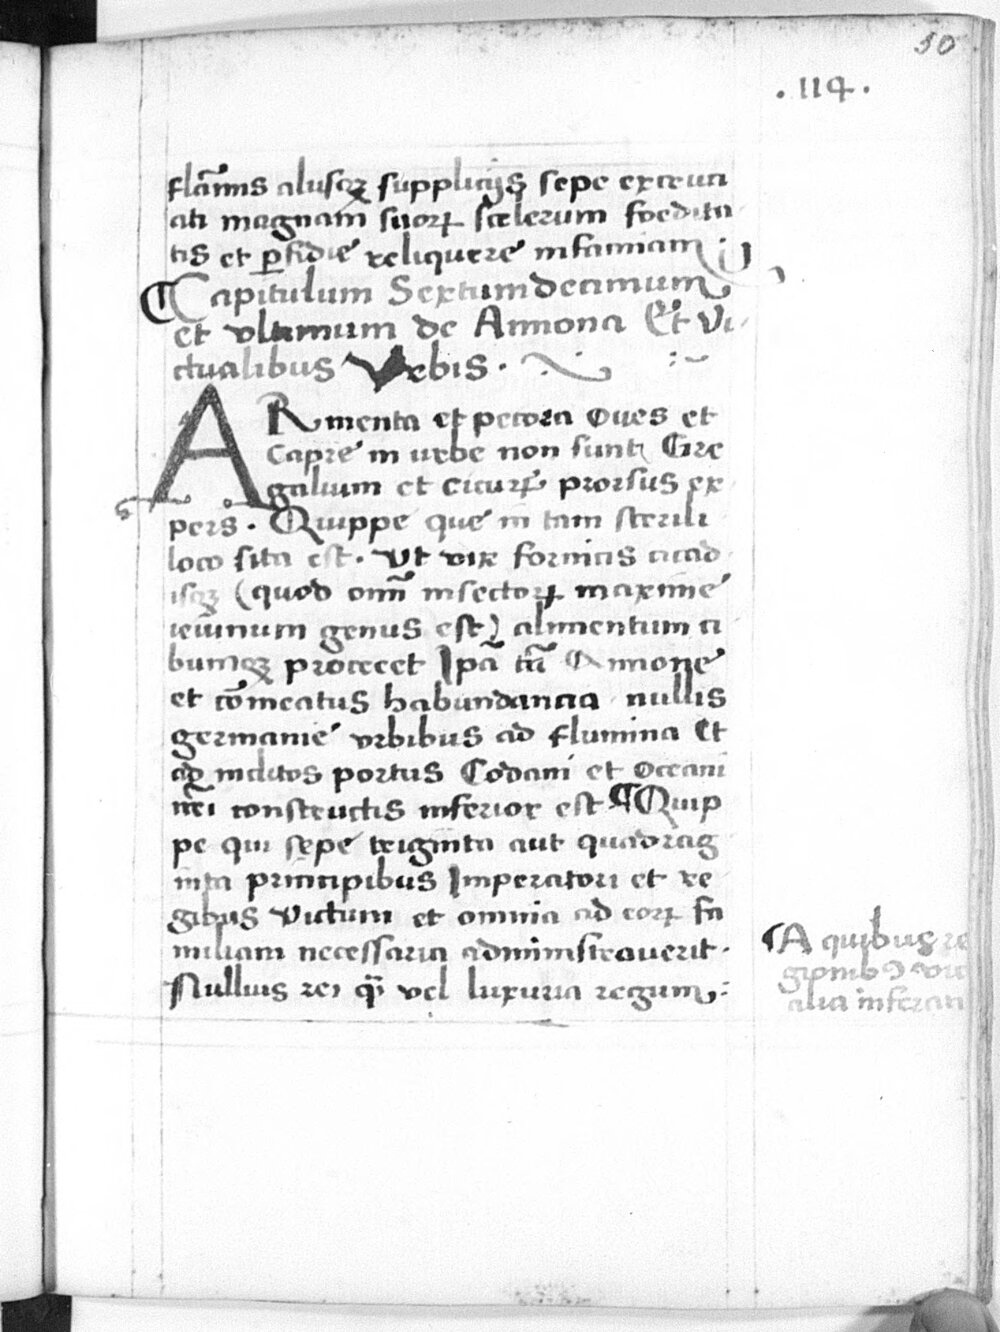 50
. 114 .
flām̄is alijsqꝫ supplicijs sepe excruci
ati magnam suoꝝ scelerum foedita
tis et ꝑfidie reliquere infamiam
¶ Capitulum Sextumdecimum
et vltimum de Annona Et Vi
ctualibus Vrbis .
ARmenta et pecora Oues et
Capre in urbe non sunt Gre
galium et cicurꝝ prorsus ex
pers . Quippe que in tam sterili
loco sita est . Vt vix formicis cicad
isqꝫ (quod omnī insectoꝝ maxime
ieiunum genus est) alimentum ci
bumqꝫ procreet Ipā tn̄ Annone
et cōmeatus habundancia nullis
germanie vrbibus ad flumina Et
ap inclitos portus Codani et Oceani
constructis inferior est ¶ Quip
pe qui sepe triginta aut quadrag
inta principibus Imperatori et re
gibus Victum et omnia ad eoꝝ fa
miliam necessaria administrauerit .
Nullius rei qꝫ vel luxuria regum
¶ A quibus re
gionibꝫ
alia inferan